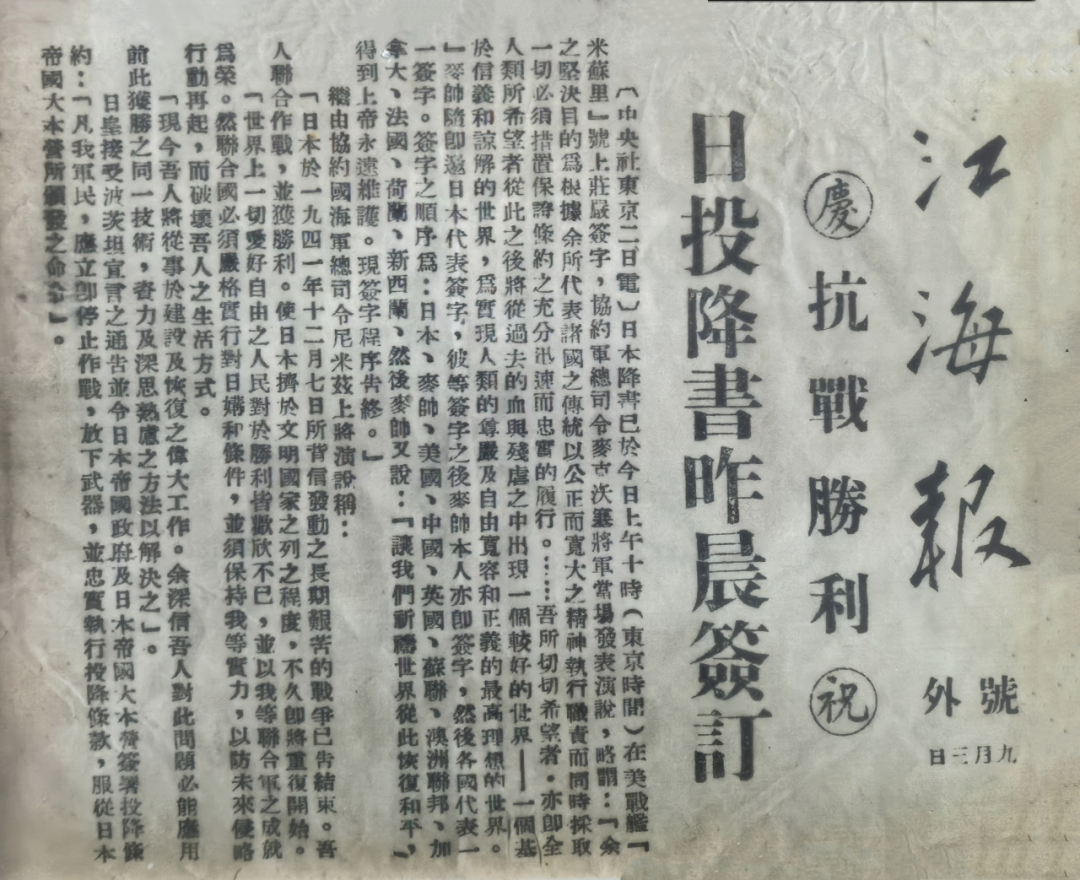 江海報
號外
九月三日
慶抗戰勝利祝
日投降書昨晨簽訂
〔中央社東京二日電〕日本降書已於今日上午十時(東京時間)在美戰艦『
米蘇里』號上莊嚴簽字,協約軍總司令麥克次塞將軍當場發表演說,略謂:『余
之堅決目的為根據余所代表諸國之傳統以公正而寬大之精神執行職責而同時採取
一切必須措置保證條約之充分迅速而忠實的履行。……吾所切切希望者,亦即全
人類所希望者從此之後將從過去的血與殘虐之中出現一個較好的世界——一個基
於信義和諒解的世界,爲實現人類的尊嚴及自由寬容和正義的最高理想的世界。
』麥帥隨卽邀日本代表簽字,彼等簽字之後麥帥本人亦卽簽字,然後各國代表一
一簽字。簽字之順序爲:日本、麥帥、美國、中國、英國、蘇聯、澳洲聯邦、加
拿大、法國、荷蘭、新西蘭、然後麥帥又說:『讓我們祈禱世界從此恢復和平,
得到上帝永遠維護。現簽字程序告終。』
繼由協約國海軍總司令尼米茲上將演說稱:
『日本於一九四一年十二月七日所背信發動之長期艱苦的戰爭已告結束。吾
人聯合作戰,並獲勝利。使日本擠於文明國家之列之程度,不久卽將重復開始。
『世界上一切愛好自由之人民對於勝利皆歡欣不已,並以我等聯合軍之成就
爲榮。然聯合國必須嚴格實行對日媾和條件,並須保持我等實力,以防未來侵略
行動再起,而破壞吾人之生活方式。
『現今吾人將從事於建設及恢復之偉大工作。余深信吾人對此問題必能應用
前此獲勝之同一技術,資力及深思熟慮之方法以解決之』。
日皇接受波茨坦宣言之通告並令日本帝國政府及日本帝國大本營簽署投降條
約:『凡我軍民,應立卽停止作戰,放下武器,並忠實執行投降條款,服從日本
帝國大本營所頒發之命令』。